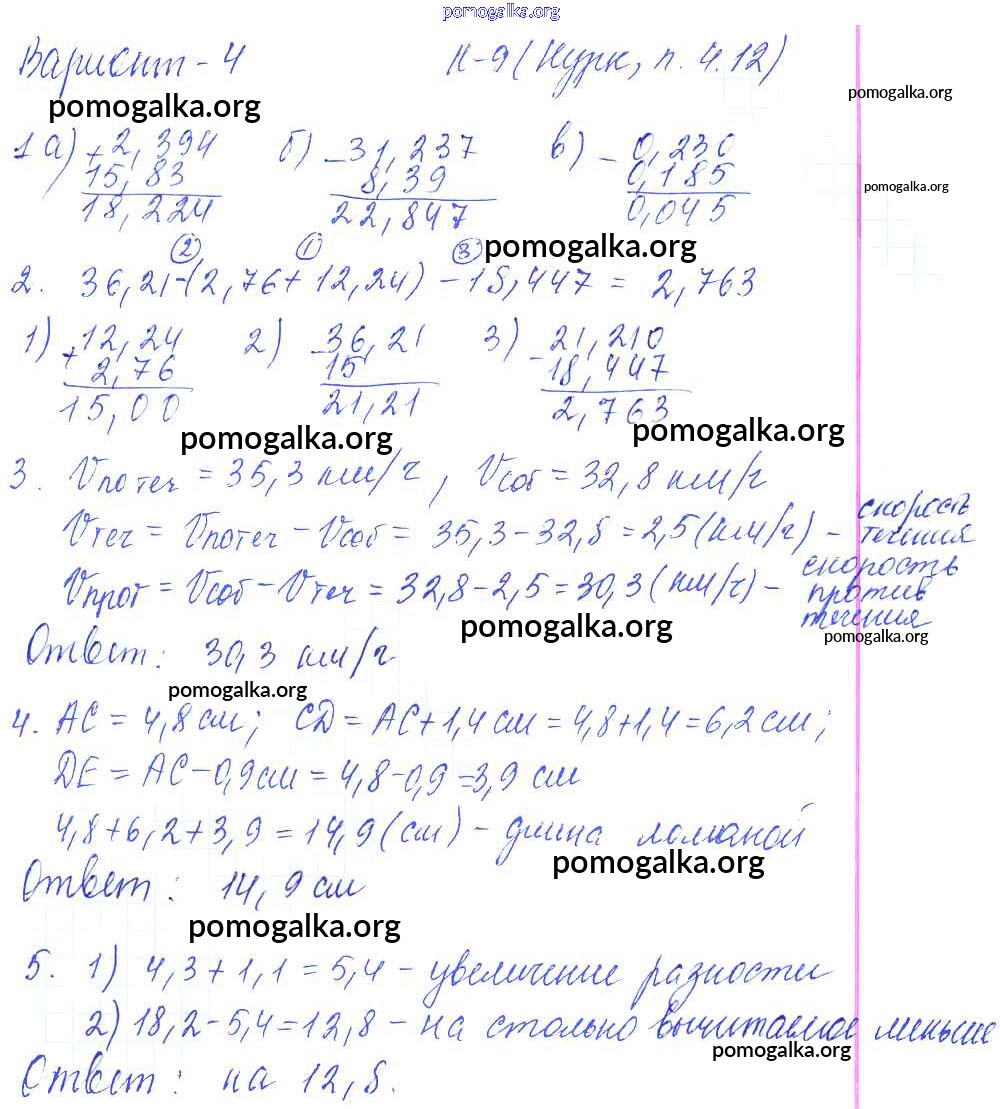 pomogalka.org
Вариант - 4 К-9 (Нурк, п. 4.12)
pomogalka.org pomogalka.org
1 а) + 2,394 б) - 31,237 в) - 0,230
15,83 8,39 0,185 pomogalka.org
18,224 22,847 0,045
2 1 3 pomogalka.org
2. 36,21-(2,76+12,24) - 18,447 = 2,763
1) + 12,24 2) - 36,21 3) - 21,210
2,76 15 18,447
15,00 21,21 2,763
pomogalka.org pomogalka.org
3. Vпо теч = 35,3 км/ч, Vсоб = 32,8 км/ч
Vтеч = Vпотеч - Vсоб = 35,3 - 32,8 = 2,5 (км/ч) - скорость течения
Vпрот = Vсоб - Vтеч = 32,8 - 2,5 = 30,3 (км/ч) - скорость против течения
pomogalka.org pomogalka.org
Ответ: 30,3 км/ч
pomogalka.org
4. AC = 4,8 см; CD = AC + 1,4 см = 4,8 + 1,4 = 6,2 см;
DE = AC - 0,9 см = 4,8 - 0,9 = 3,9 см
4,8 + 6,2 + 3,9 = 14,9 (см) - длина ломаной
pomogalka.org
Ответ: 14,9 см
pomogalka.org
5. 1) 4,3 + 1,1 = 5,4 - увеличение разности
2) 18,2 - 5,4 = 12,8 - на столько вычитаемое меньше
pomogalka.org
Ответ: на 12,8.